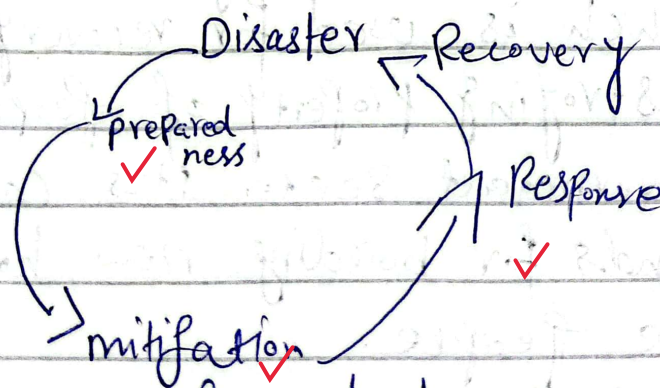 Disaster
Recovery
prepared
ness
Response
mitifation